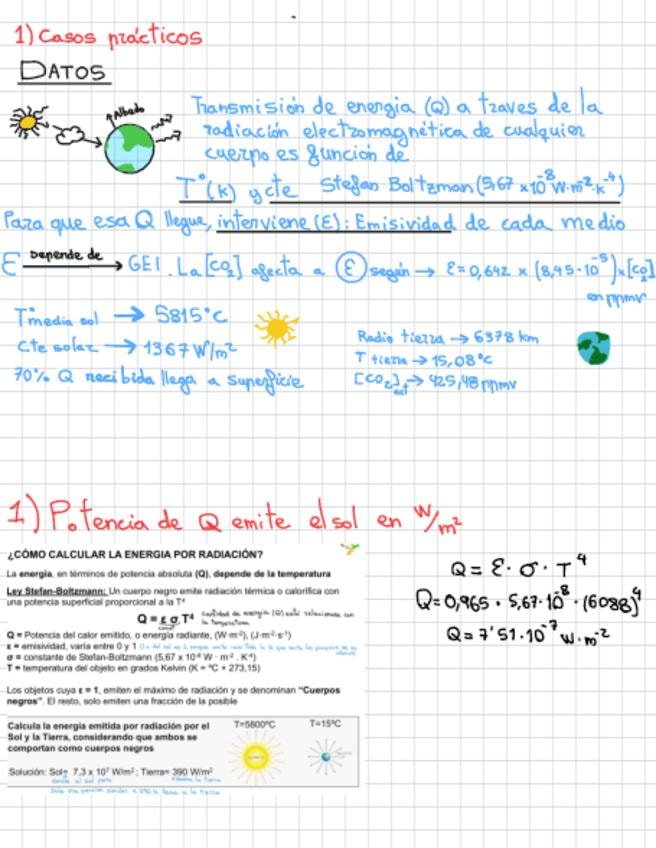 1) Casos prácticos
DATOS
Albedo
Transmisión de energia (Q) a traves de la
radiación electromagnética de cualquier
cuerpo es función de
T°(k) y cte Stefan Boltzman (5,67 x10⁻⁸ W·m⁻²·k⁻⁴)
Para que esa Q llegue, interviene (ε): Emisividad de cada medio
ε Depende de → GEI. La [CO₂] afecta a ε según → ε=0,642 x (8,45·10⁻⁵) x [CO₂]
en ppmv
Tª media sol → 5815°C
Cte solar → 1367 W/m²
70% Q recibida llega a superficie
Radio tierra → 6378 km
T tierra → 15,08°C
[CO₂] → 425,48 ppmv
1) Potencia de Q emite el sol en W/m²
¿CÓMO CALCULAR LA ENERGIA POR RADIACIÓN?
La energia, en términos de potencia absoluta (Q), depende de la temperatura
Ley Stefan-Boltzmann: Un cuerpo negro emite radiación térmica o calorífica con
una potencia superficial proporcional a la T⁴
Q = ε σ T⁴ cantidad de energia (Q) está relacionada con
la temperatura
Q = Potencia del calor emitido, o energía radiante, (W·m⁻²), (J·m⁻²·s⁻¹)
ε = emisividad, varía entre 0 y 1
σ = constante de Stefan-Boltzmann (5,67 x 10⁻⁸ W · m⁻² · K⁻⁴)
T = temperatura del objeto en grados Kelvin (K = ºC + 273,15)
Los objetos cuya ε = 1, emiten el máximo de radiación y se denominan "Cuerpos
negros". El resto, solo emiten una fracción de la posible
Calcula la energia emitida por radiación por el
Sol y la Tierra, considerando que ambos se
comportan como cuerpos negros
T=5800ºC
T=15ºC
Solución: Sol= 7,3 x 10⁷ W/m²; Tierra= 390 W/m²
Q = ε · σ · T⁴
Q=0,965 · 5,67·10⁻⁸ · (6088)⁴
Q = 7'51·10⁻⁷ W·m⁻²